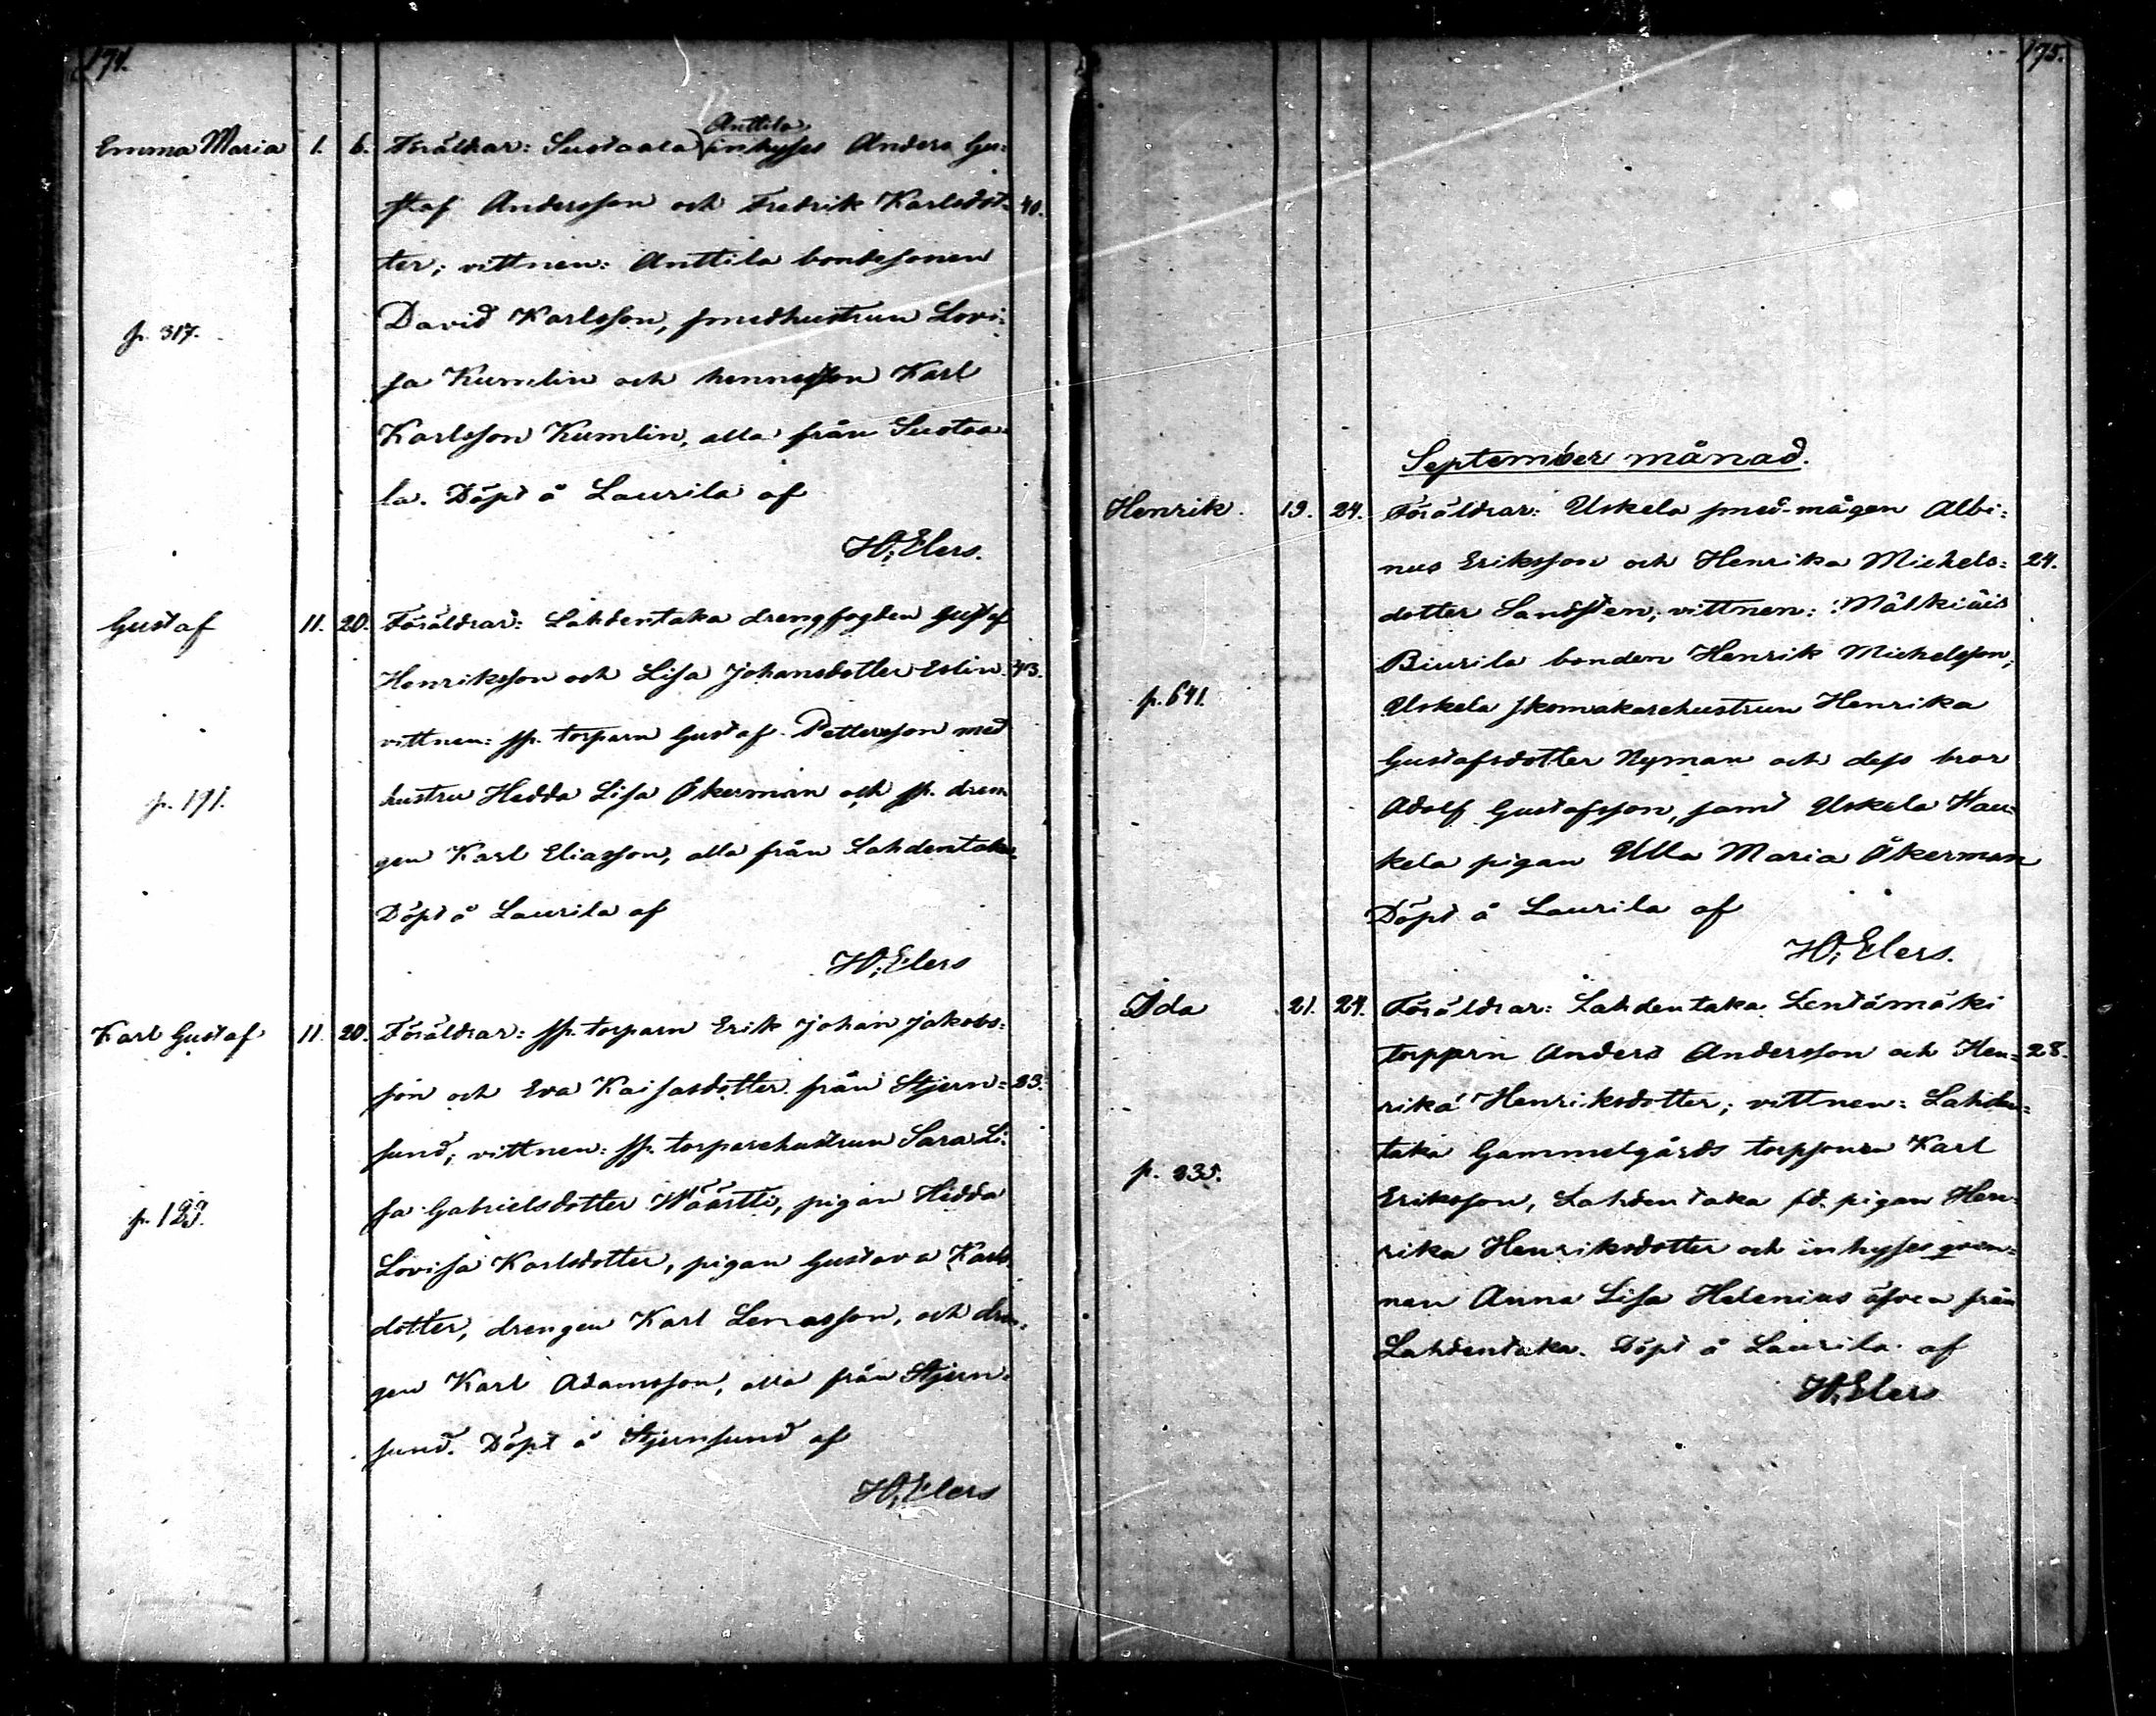 174.
Emma Maria 1. 6. Föräldrar: Sustaala Anttila inhyses Anders Gu=
staf Andersson och Fredrik Karlsdot= 40.
ter; vittnen: Anttila bondesonen
David Karlsson, smedhustrun Lovi=
p. 317.
sa Kumlin och hennes son Karl
Karlsson Kumlin, alla från Sustaa=
la. Döpt å Laurila af
H. Elers.
Gustaf 11. 20. Föräldrar: Lahdentaka drengfogden Gustaf
Henriksson och Lisa Johansdotter Eslin 43.
vittnen: sp. torparn Gustaf Pettersson med
hustru Hedda Lisa Åkerman och sp. dren
p. 191.
gen Karl Eliasson, alla från Lahdentaka.
Döpt å Laurila af
H. Elers
Karl Gustaf 11. 20. Föräldrar: sp. torparn Erik Johan Jakobs=
son och Eva Kaisasdotter från Stjern= 23.
sund; vittnen: sp. torparehustrun Sara Li=
sa Gabrielsdotter Wäärtti, pigan Hedda
p. 123.
Lovisa Karlsdotter, pigan Gustava Karls
dotter, drengen Karl Lenasson, och dren=
gen Karl Adamsson, alla från Stjern=
sund. Döpt å Stjernsund af
H. Elers
175.
September månad.
Henrik. 19. 24. Föräldrar: Uskela smed-mågen Albi=
nus Eriksson och Henrika Michels= 24.
dotter Sandsten; vittnen: Mälkiäis
Biurila bonden Henrik Michelsson,
p. 641.
Uskela skomakarehustrun Henrika
Gustafsdotter Nyman och dess bror
Adolf Gustafsson, samt Uskela Hau=
kela pigan Ulla Maria Åkerman
Döpt å Laurila af
H. Elers.
Ida 21. 24. Föräldrar: Lahdentaka Lentämäki
torparn Anders Andersson och Hen= 28.
rika Henriksdotter; vittnen: Lahden=
taka Gammelgårds torpsonen Karl
p. 235.
Eriksson, Lahdentaka fd. pigan Hen=
rika Henriksdotter och inhyses qvin=
nan Anna Lisa Helenius äfven från
Lahdentaka. Döpt å Laurila af
H. Elers